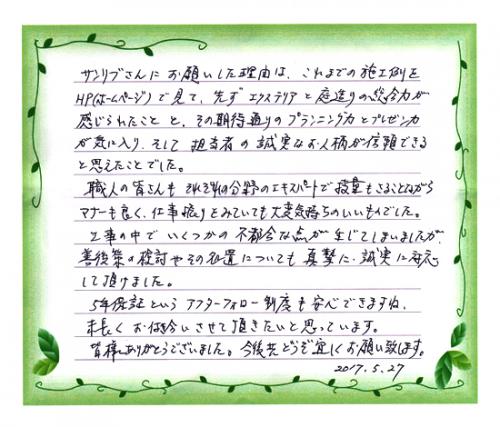 サンリブさんにお願いした理由は、これまでの施工例を
HP(ホームページ)で見て、先ずエクステリアと庭造りの総合力が
感じられたことと、その期待通りのプランニング力とプレゼン力
が気に入り、そして担当者の誠実なお人柄が信頼できる
と思えたことでした。
職人の皆さんもそれぞれの分野のエキスパートで技量もさることながら
マナーも良く、仕事振りをみていても大変気持ちのいいものでした。
工事の中でいくつかの不都合な点が生じてしまいましたが、
善後策の検討やその処置についても真摯に、誠実に対応
して頂けました。
5年保証というアフターフォロー制度も安心できますね、
末長くお付合いさせて頂きたいと思っています。
皆様ありがとうございました。今後共どうぞ宜しくお願い致します。
2017.5.27